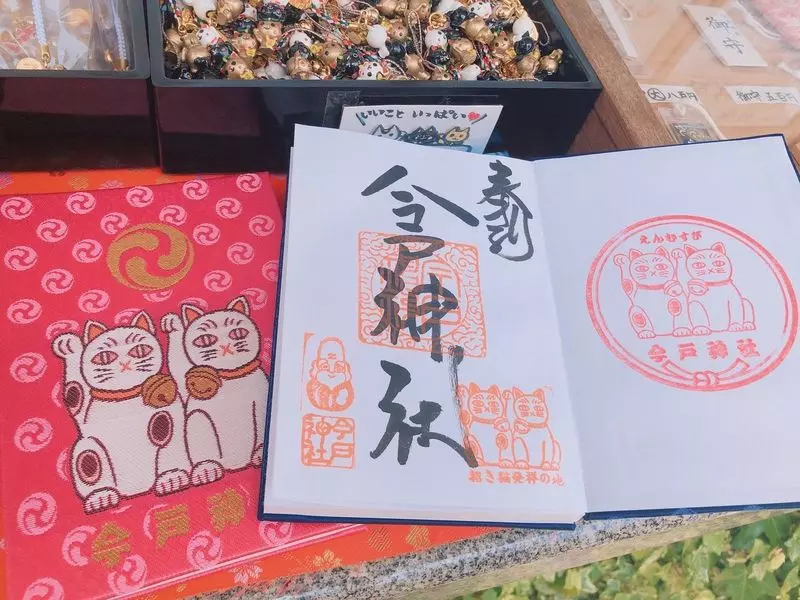 御守
八百円
御守 五百円
いいこと いっぱい
奉拝
今戸神社
今戸
神社
招き猫発祥の地
えんむすび
今戸神社
今戸神